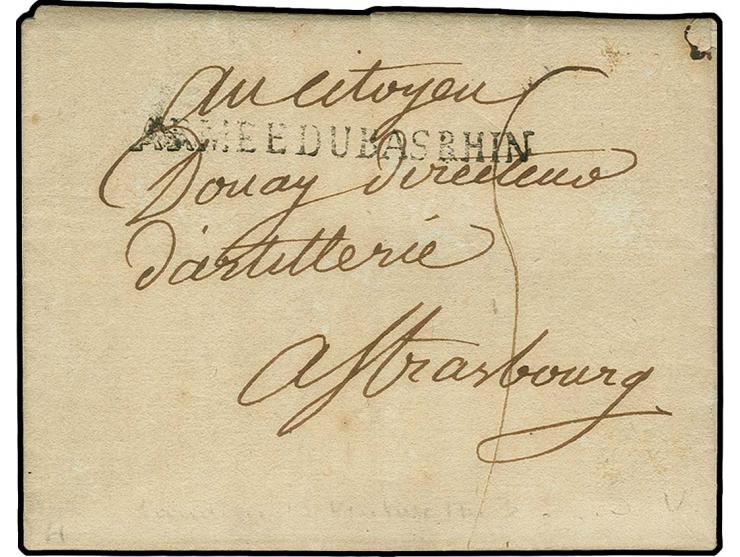 au citoyen
ARMEE DU BAS RHIN
Douay directeur
d'artillerie
A Strasbourg